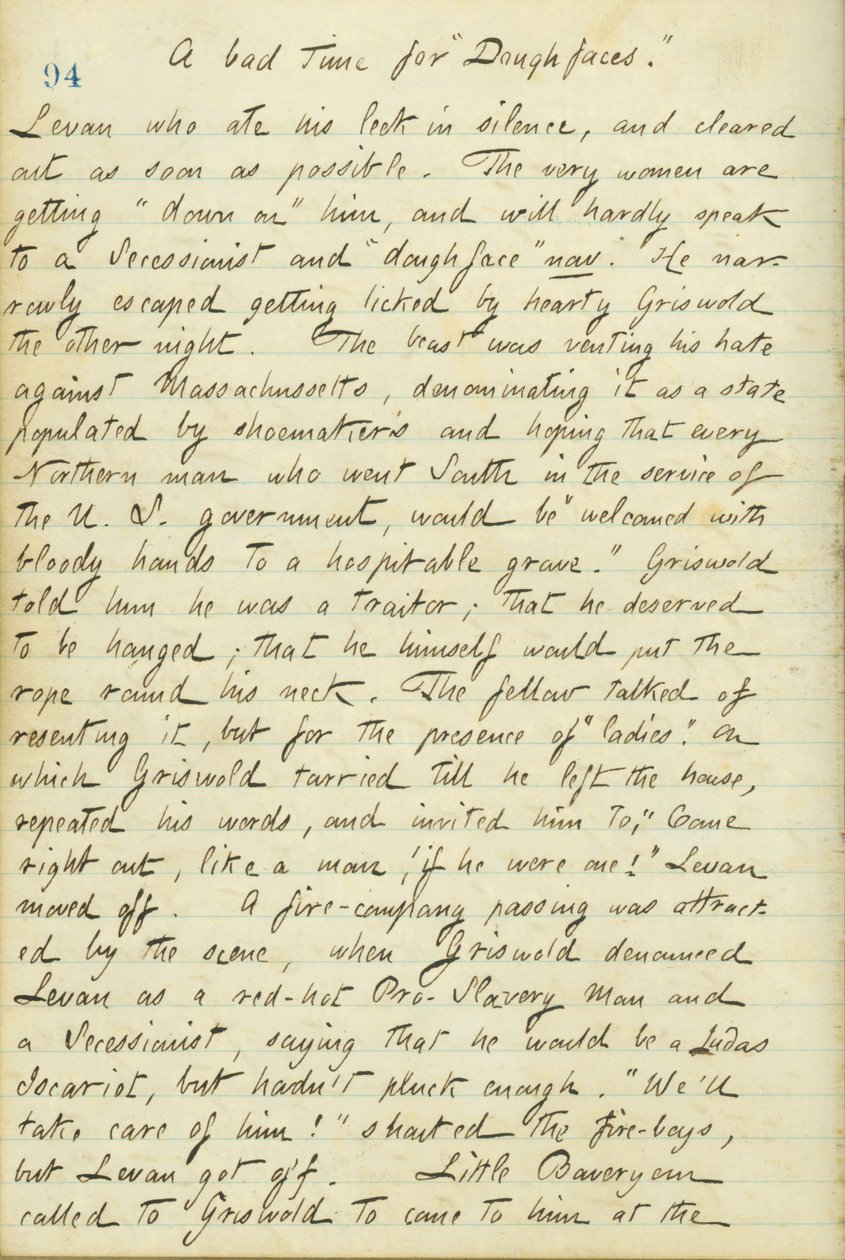 94
A bad Time for "Doughfaces."
Levan who ate his leek in silence, and cleared
out as soon as possible. The very women are
getting "down on" him, and will hardly speak
to a Secessionist and "doughface" now. He nar-
rowly escaped getting licked by hearty Griswold
the other night. The beast was venting his hate
against Massachussetts, denominating it as a state
populated by shoemaker's and hoping that every
Northern man who went South in the service of
the U. S. government, would be "welcomed with
bloody hands to a hospitable grave." Griswold
told him he was a traitor; that he deserved
to be hanged; that he himself would put the
rope round his neck. The fellow talked of
resenting it, but for the presence of "ladies". On
which Griswold tarried till he left the house,
repeated his words, and invited him to, "Come
right out, like a man, if he were one!" Levan
moved off. A fire-company passing was attract-
ed by the scene, when Griswold denounced
Levan as a red-hot Pro-Slavery man and
a Secessionist, saying that he would be a Judas
Iscariot, but hadn't pluck enough. "We'll
take care of him!" shouted the fire-boys,
but Levan got off. Little
called to Griswold to come to him at the